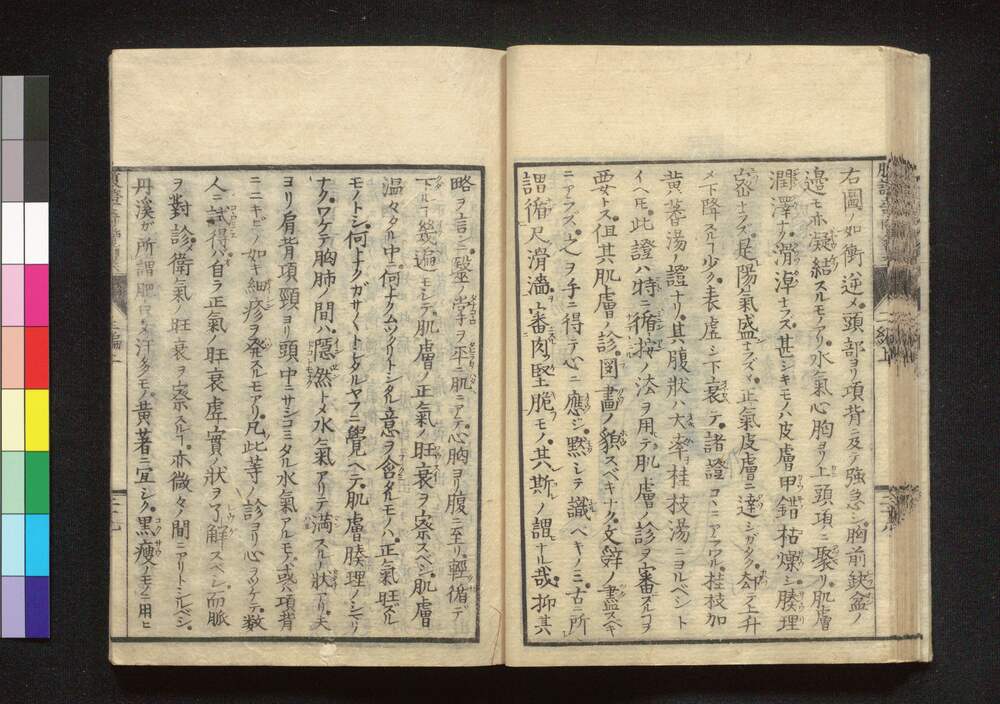 右圖ノ如衝逆メ頭部ヨリ項背ニ及テ強急シ胸前缺盆ノ
邉モ亦凝結スルモノアリ水氣心胸ヨリ上頭項ニ聚リ肌膚
潤澤ナク滑淖ナラズ甚シキモノハ皮膚甲錯枯燥シ腠理
密ナラズ是陽氣盛ナラズメ正氣皮膚ニ達シガタク却テ上升
メ下降スルヿ少ク表虚シ下衰テ諸證コヽニアラワル桂枝加
黄蓍湯ノ證ナリ其腹狀ハ大率桂枝湯ニヨルベシト
イヘ𪜈此證ハ特ニ循按ノ法ヲ用テ肌膚ノ診ヲ審スルヿヲ
要トス但其肌膚ノ診圖畫ノ貌スベキナク文辭ノ盡スベキ
ニアラズ之ヲ手ニ得テ心ニ應ジ黙シテ識ベキノミ古ニ所
謂循尺滑濇審肉堅脆モノ其斯ノ謂ナル哉抑其
略ヲ言ンニ毉ノ掌ヲ平ニ肌ニアテ心胸ヨリ腹ニ至リ輕循デ
下ルヿ幾遍モシテ肌膚ノ正氣ノ旺衰ヲ察スベシ肌膚
温々タル中ニ何ナクムツクリトシタル意ヲ含タルモノハ正氣旺ズル
モノトシ何トナクガサ〱トシタルヤフニ覺ヘテ肌膚腠理ノシマリ
ナクワケテ胸肺ノ間ハ隱然トメ水氣アリテ満スル狀アリ夫
ヨリ肩背項頸ヨリ頭中ニサシコミタル水氣アルモノアリ或ハ項背
ニニキビノ如キ細疹ヲ発スルモアリ凡此等ノ診ヨリ心ヲツケテ数
人ニ試得バ自ラ正氣ノ旺衰虚實ノ狀ヲ了解スベシ而脈
ヲ對診衛氣ノ旺衰ヲ察スルヿ亦微々ノ間ニアリトシルベシ
丹溪ガ所謂肥白メ汗多モノ黄蓍ニ宜シク黒瘦ノモノニ用ヒ